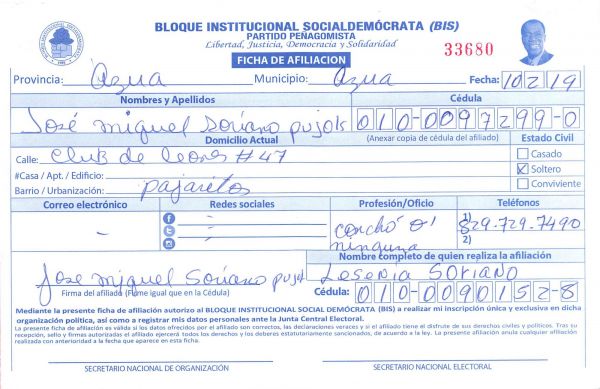 BLOQUE INSTITUCIONAL SOCIALDEMÓCRATA (BIS)
PARTIDO PEÑAGOMISTA
Libertad, Justicia, Democracia y Solidaridad
FICHA DE AFILIACION
33680
Provincia: Azua Municipio: Azua Fecha: 10 2 19
Nombres y Apellidos Cédula
José miguel Soriano pujols 010-0097299-0
Domicilio Actual (Anexar copia de cédula del afiliado) Estado Civil
Calle: Club de leones #47
Casado
#Casa / Apt. / Edificio:
Soltero
Barrio / Urbanización: pajaritos
Conviviente
Correo electrónico Redes sociales Profesión/Oficio Teléfonos
- conchó o' ninguna
1) 829-729-7490
2)
Nombre completo de quien realiza la afiliación
Jose miguel Soriano pujol Lesenia SORIANO
Firma del afiliado (Firme igual que en la Cédula) Cédula: 010-0090152-8
Mediante la presente ficha de afiliación autorizo al BLOQUE INSTITUCIONAL SOCIAL DEMÓCRATA (BIS) a realizar mi inscripción única y exclusiva en dicha
organización política, así como a registrar mis datos personales ante la Junta Central Electoral.
La presente ficha de afiliación es válida si los datos ofrecidos por el afiliado son correctos, las declaraciones veraces y si el afiliado tiene el disfrute de sus derechos civiles y políticos. Tras su
recepción, sello y firmas autorizadas el afiliado ejercerá todos los derechos y los deberes estatutariamente sancionados, de acuerdo a la ley. La presente afiliación anula cualquier afiliación
realizada con anterioridad a la fecha que aparece en esta ficha.
SECRETARIO NACIONAL DE ORGANIZACIÓN SECRETARIO NACIONAL ELECTORAL